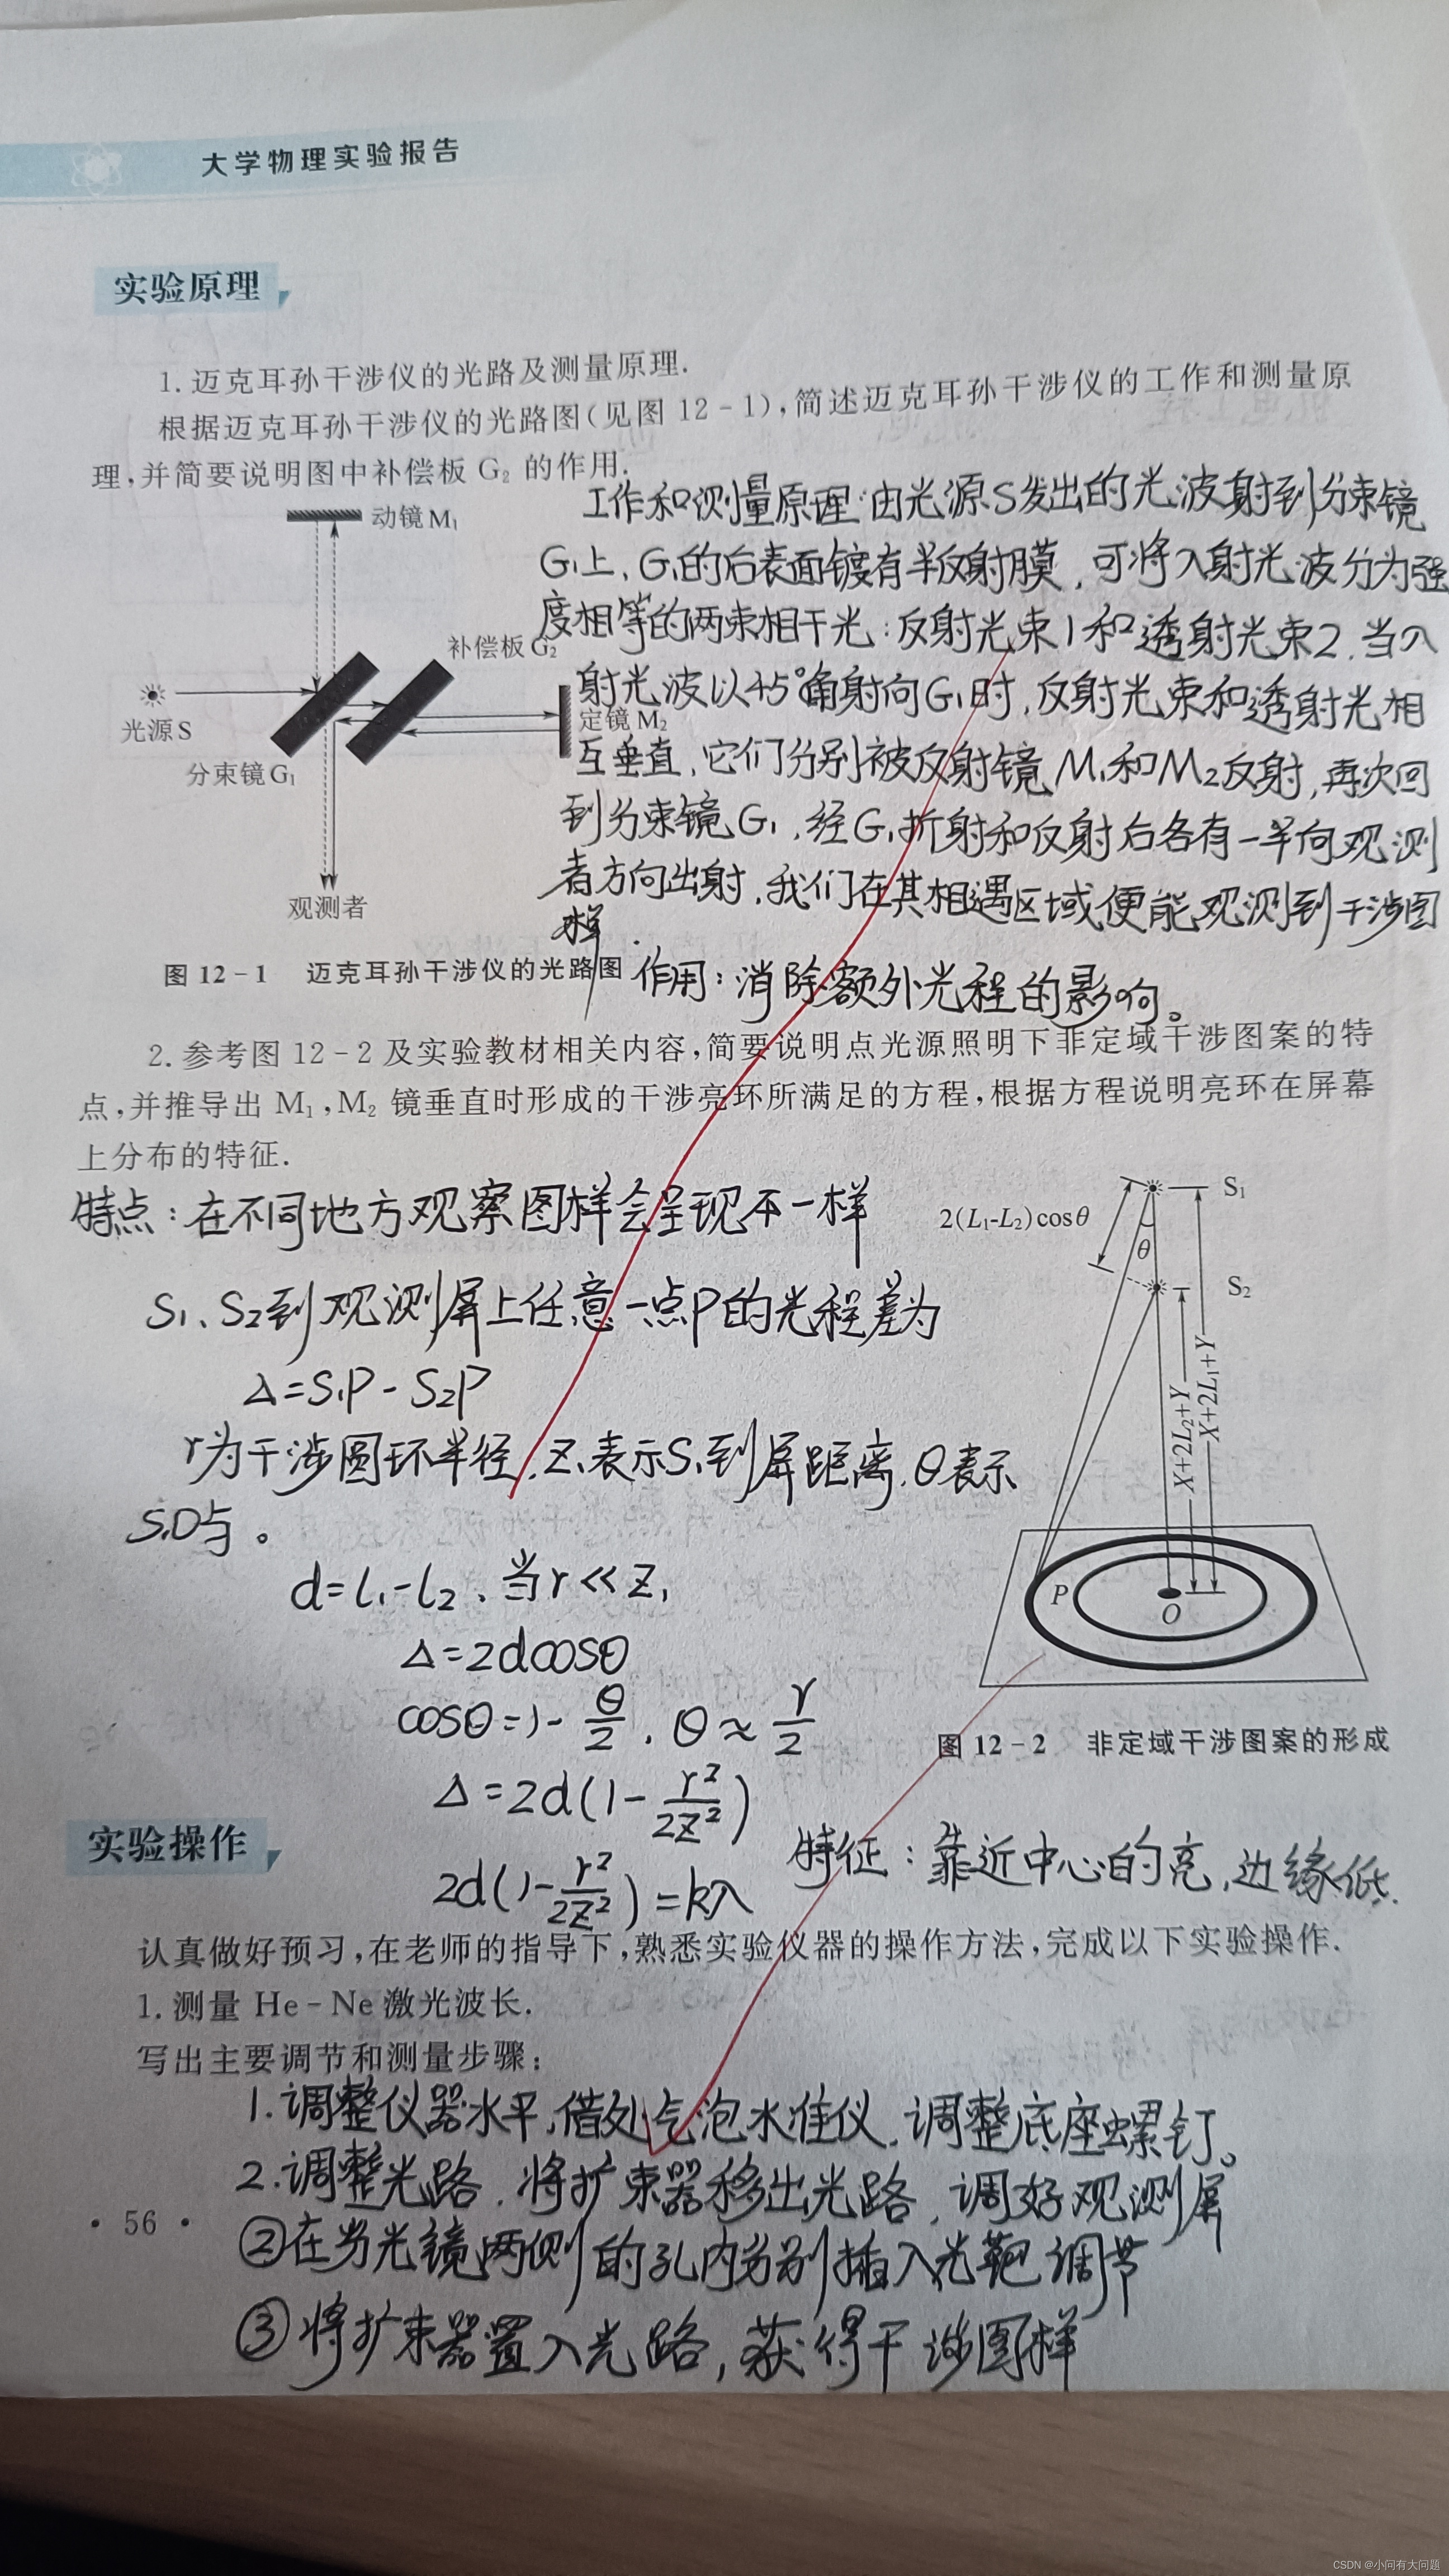 大学物理实验报告
实验原理
1. 迈克耳孙干涉仪的光路及测量原理.
根据迈克耳孙干涉仪的光路图(见图 12-1),简述迈克耳孙干涉仪的工作和测量原
理,并简要说明图中补偿板 G₂ 的作用.
工作和测量原理:由光源S发出的光波射到分束镜
G₁上,G₁的后表面镀有半反射膜,可将入射光波分为强
度相等的两束相干光:反射光束1和透射光束2.当入
射光波以45°角射向G₁时,反射光束和透射光相
互垂直,它们分别被反射镜M₁和M₂反射,再次回
到分束镜G₁,经G₁折射和反射后各有一半向观测
者方向出射,我们在其相遇区域便能观测到干涉图
样.
动镜 M₁
补偿板 G₂
光源 S
定镜 M₂
分束镜 G₁
观测者
图 12-1 迈克耳孙干涉仪的光路图
作用:消除额外光程的影响。
2. 参考图 12-2 及实验教材相关内容,简要说明点光源照明下非定域干涉图案的特
点,并推导出 M₁,M₂ 镜垂直时形成的干涉亮环所满足的方程,根据方程说明亮环在屏幕
上分布的特征.
特点:在不同地方观察图样会呈现不一样
S₁、S₂到观测屏上任意一点P的光程差为
Δ=S₁P-S₂P
r为干涉圆环半径,Z₁表示S₁到屏距离,θ表示
S₁O与。
d=L₁-L₂、当r≪Z₁
Δ=2dcosθ
cosθ=1-θ/2, θ≈r/2
Δ=2d(1-r²/2Z²)
2d(1-r²/2Z²)=kλ
S₁
2(L₁-L₂)cosθ
θ
S₂
X+2L₂+Y
X+2L₁+Y
P
O
图 12-2 非定域干涉图案的形成
特征:靠近中心的亮,边缘低.
实验操作
认真做好预习,在老师的指导下,熟悉实验仪器的操作方法,完成以下实验操作.
1. 测量 He-Ne 激光波长.
写出主要调节和测量步骤:
1.调整仪器水平,借处气泡水准仪,调整底座螺钉。
2.调整光路,将扩束器移出光路,调好观测屏
②在分光镜两侧的孔内分别插入光靶调节
③将扩束器置入光路,获得干涉图样
· 56 ·
CSDN @小问有大问题